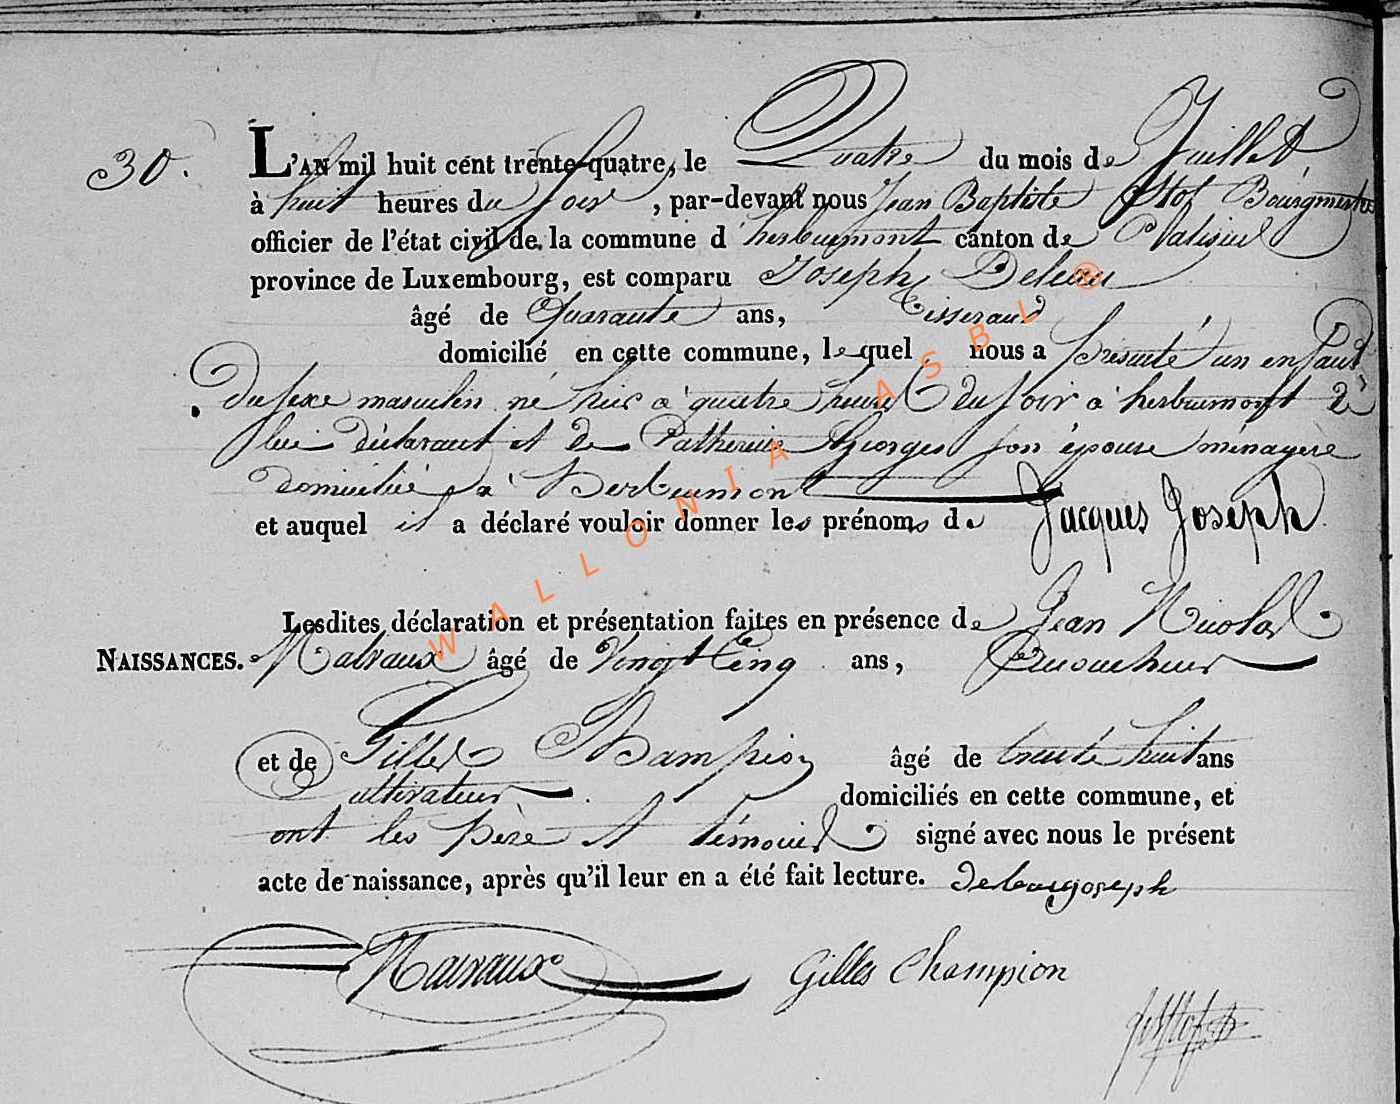 30.
L'AN mil huit cent trente-quatre, le Quatre du mois de Juillet
à huit heures du Soir, par-devant nous Jean Baptiste Bourgmestre
officier de l'état civil de la commune d'herbeumont canton de
province de Luxembourg, est comparu Joseph
âgé de Quarante ans, Tisserand
domicilié en cette commune, lequel nous a présenté un enfant
du sexe masculin né hier à quatre heures du soir à herbeumont de
lui déclarant et de Catherine Georges son épouse ménagère
domiciliée à Herbeumont
et auquel il a déclaré vouloir donner les prénoms de Jacques Joseph
Lesdites déclaration et présentation faites en présence de Jean Nicolas
NAISSANCES. Malvaux âgé de Vingt Cinq ans,
et de Gilles Champion âgé de trente huit ans
cultivateur domiciliés en cette commune, et
ont les père et témoins signé avec nous le présent
acte de naissance, après qu'il leur en a été fait lecture. joseph
Malvaux Gilles Champion
WALLONIA ASBL ®